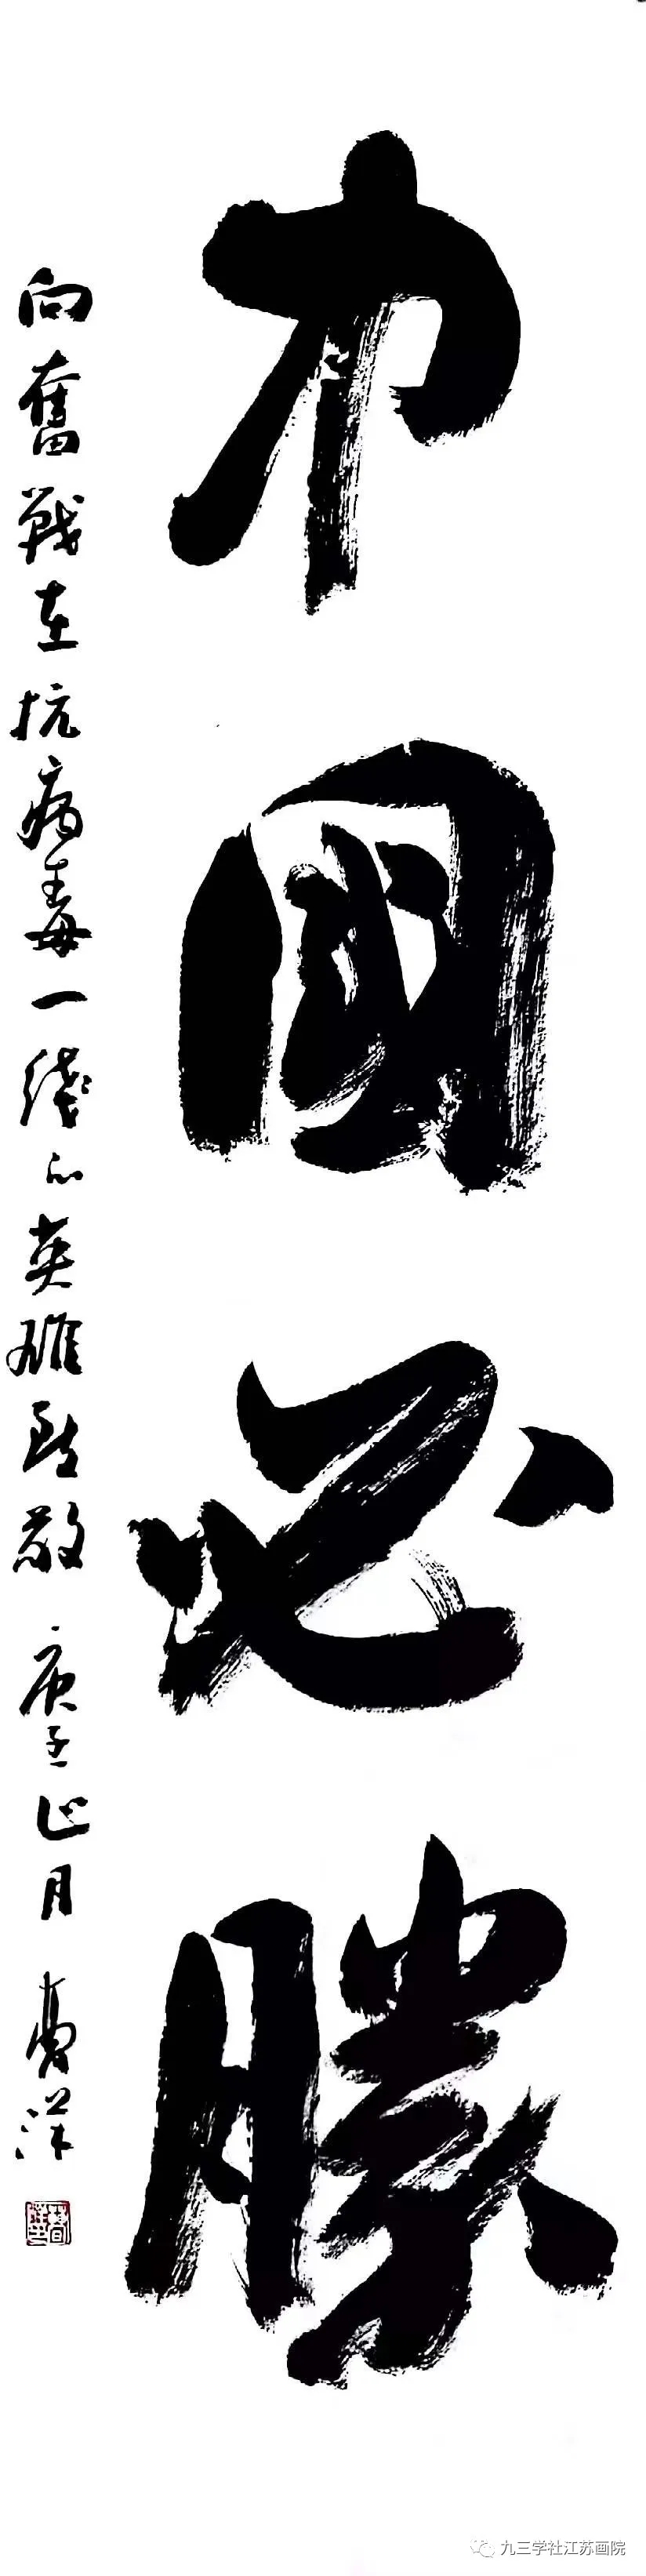 中國必勝
向奮戰在抗病毒一綫的英雄致敬 庚子正月 洋
九三学社江苏画院